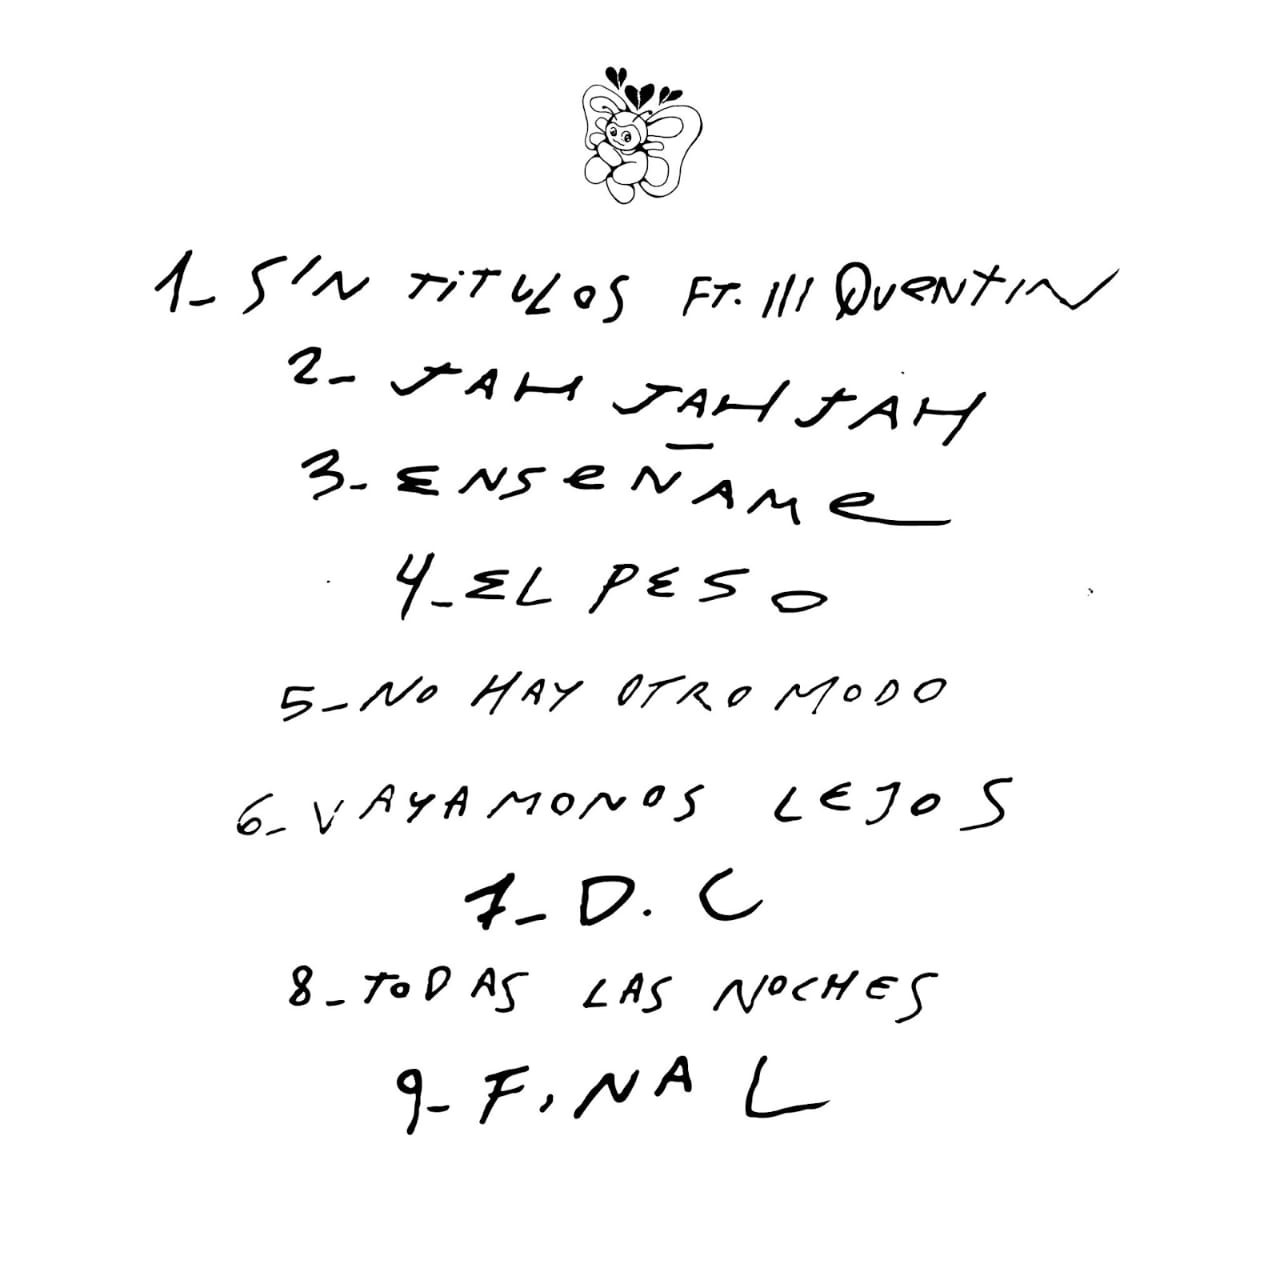 1- SIN TiTULOS FT. III QUENTIN
2- JAH JAH JAH
3- ENSEÑAME
4- EL PESO
5- NO HAY OTRO MODO
6- VAYAMONOS LEJOS
7- D.C
8- TODAS LAS NOCHES
9- FiNAL